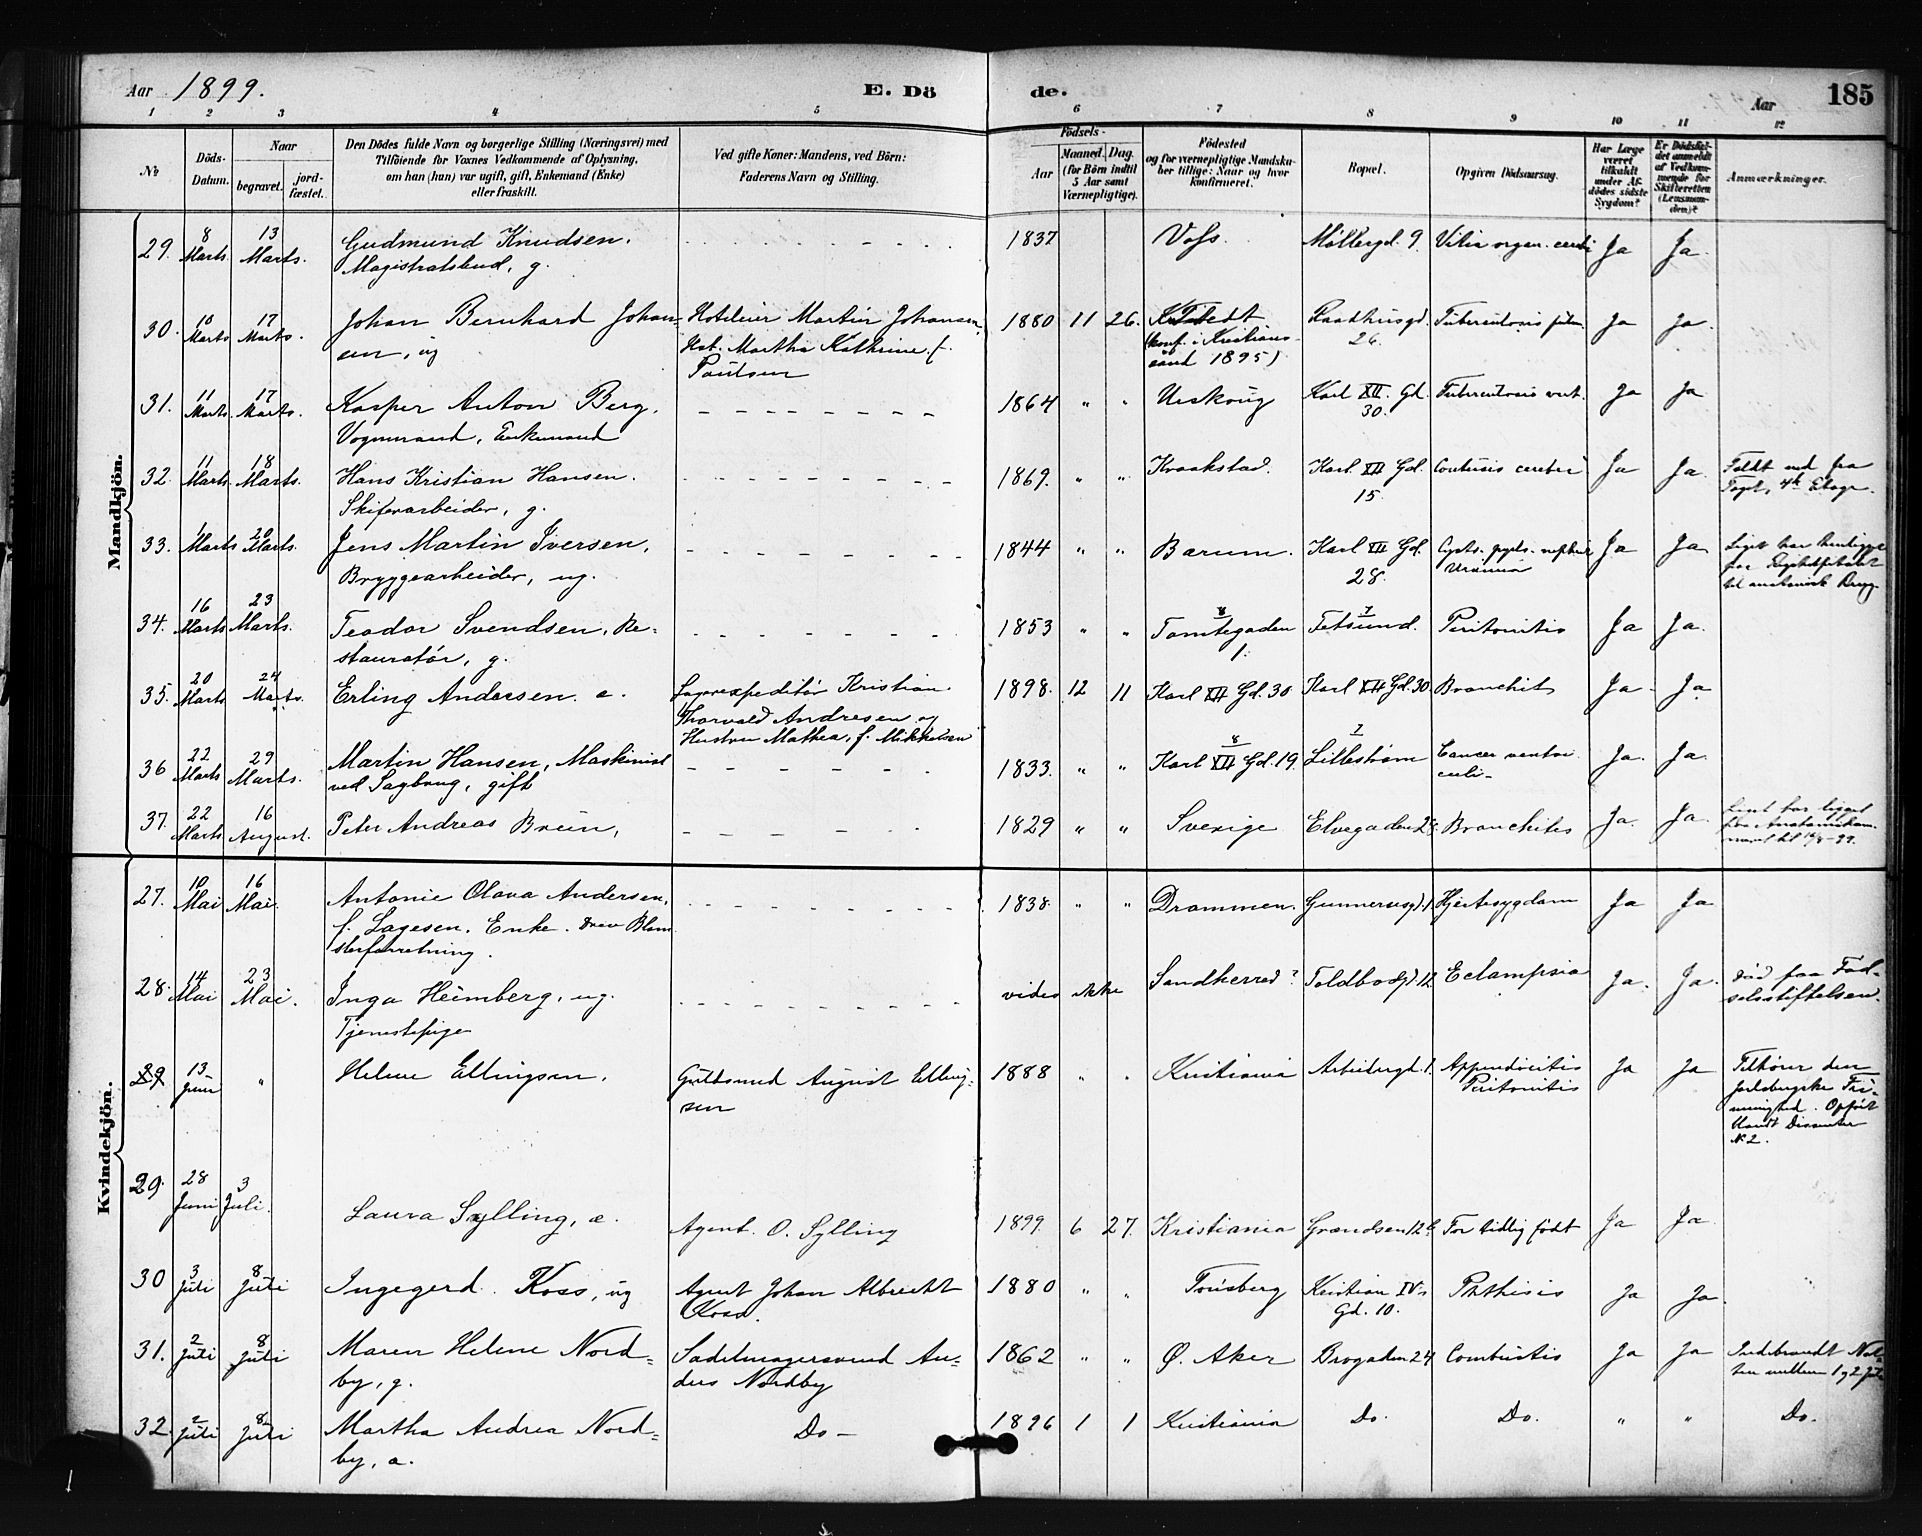 Aar 1899.
E. Dö
de.
Aar
185
1 2 3 4 5 6 7 8 9 10 11 12
№
Döds-Datum.
Naar
begravet.
jord-fæstet.
Den Dödes fulde Navn og borgerlige Stilling (Næringsvei) med
Tilföiende for Voxnes Vedkommende af Oplysning,
om han (hun) var ugift, gift, Enkemand (Enke)
eller fraskilt.
Ved gifte Koner: Mandens, ved Börn:
Faderens Navn og Stilling.
Födsels-
Aar
Maaned. Dag.
(for Börn indtil
5 Aar samt
Værnepligtige).
Födested
og for værnepligtige Mandsku-
ber tillige: Naar og hvor
konfirmeret.
Bopæl.
Opgiven Dödsaarsag.
Har Læge
været
tilkaldt
under Af-
dödes sidste
Sygdom?
Er Dödsfal-
det anmeldt
af Vedkom-
mende for
Skifteretten
(Lensman-
den)?
Anmærkninger.
Mandkjön.
29. 8 Marts 13 Marts. Gudmund Knudsen. 1837 Voss. Møllergd. 9. Vitia organ. cordis Ja Ja.
Magistratsbud, g.
30. 10 Marts 17 Marts. Johan Bernhard Johan- Hotelier Martin Johansen, 1880 11 26. Raadhusgd. Tuberculosis pulm. Ja Ja.
sen, ug Hst. Martha Kathrine f. (konf. i Kristians- 26.
Paulsen sand 1895)
31. 11 Marts. 17 Marts. Kasper Anton Berg. 1864 " " Urskoug Karl XII. Gd. Tuberculosis vert. Ja Ja
Vognmand, Enkemand 30.
32. 11 Marts. 18 Marts. Hans Kristian Hansen. 1869. " " Kraakstad. Karl XII Gd. Contusio cerebri Ja Ja. Faldt ned fra
Skiferarbeider, g. 15. Taget, 4de Etage.
33. 1 Marts 20 Marts. Jens Martin Iversen, 1844 " " Bærum. Karl XII Gd. Ja Ja
Bryggearbeider, ug. 28. Uræmia
34. 16 Marts 23 Marts. Teodor Svendsen, Re- 1853 " " 8 Tomtegaden 7 Fetsund. Peritonitis Ja Ja.
stauratør, g. 1.
35. 20 Marts 24 Marts. Erling Andersen. æ. Lagerexpeditør Kristian 1898. 12 11 Karl XII Gd. 30 Karl XII Gd. 30 Bronchit Ja Ja
Thorvald Andresen og
Hustru Mathea, f. Mikkelsen
36 22 Marts 29 Marts. Martin Hansen, Maskinist 1833. " " 8 Karl XII Gd. 19. 7 Lillestrøm Cancer ventri- Ja. Ja.
ved Sagbrug, gift culi-
37. 22 Marts 16 August. Peter Andreas Brein, 1829 " " Sverige Elvegaden Bronchites Ja. Ja.
Kvindekjön.
27. 10 Mai 16 Mai. Antonie Olava Andersen, 1838. " " Drammen. Gunnerusgd. 1. Hjertesygdom Ja Ja
f. Lagesen. Enke. Drev Blom-
sterforretning.
28. 14 Mai 23 Mai. Inga Heimberg, ug. vides ikke Sandherred? Toldbodgd. 12 Eclampsia Ja. Ja. død paa Fød-
Tjenestepige selsstiftelsen.
29 13 Juni " Helene Ellingsen. Guldsmed August Elling- 1888 " " Kristiania Arbeidergd. 1. Appendicitis Ja Ja Tilhører den
sen Peritonitis Jarlsbergske Fri-
menighed. Opført
blandt Dissenter
N. 2.
29. 28 Juni 3 Juli. Laura Sylling, æ. Agent. O. Sylling 1899. 6 27. Kristiania Grændsen 12 b. For tidlig født Ja Ja
30 3 Juli 8 Juli Ingegerd Koss, ug Agent Johan Albrecht 1880 " " Tønsberg Kristian IVs Phthisis Ja Ja.
Koss. Gd. 10.
31. 2 Juli 8 Juli Maren Helene Nord- Sadelmagersvend An- 1862 " " Ø. Aker Brogaden 24 Combustio Ja Ja Indebrændt Nat-
by, g. ders Nordby ten mellem 1 og 2 Juli
32. 2 Juli 8 Juli Martha Andrea Nord- Do - 1896 1 1 Kristiania Do. Do. " " Do.
by, æ.